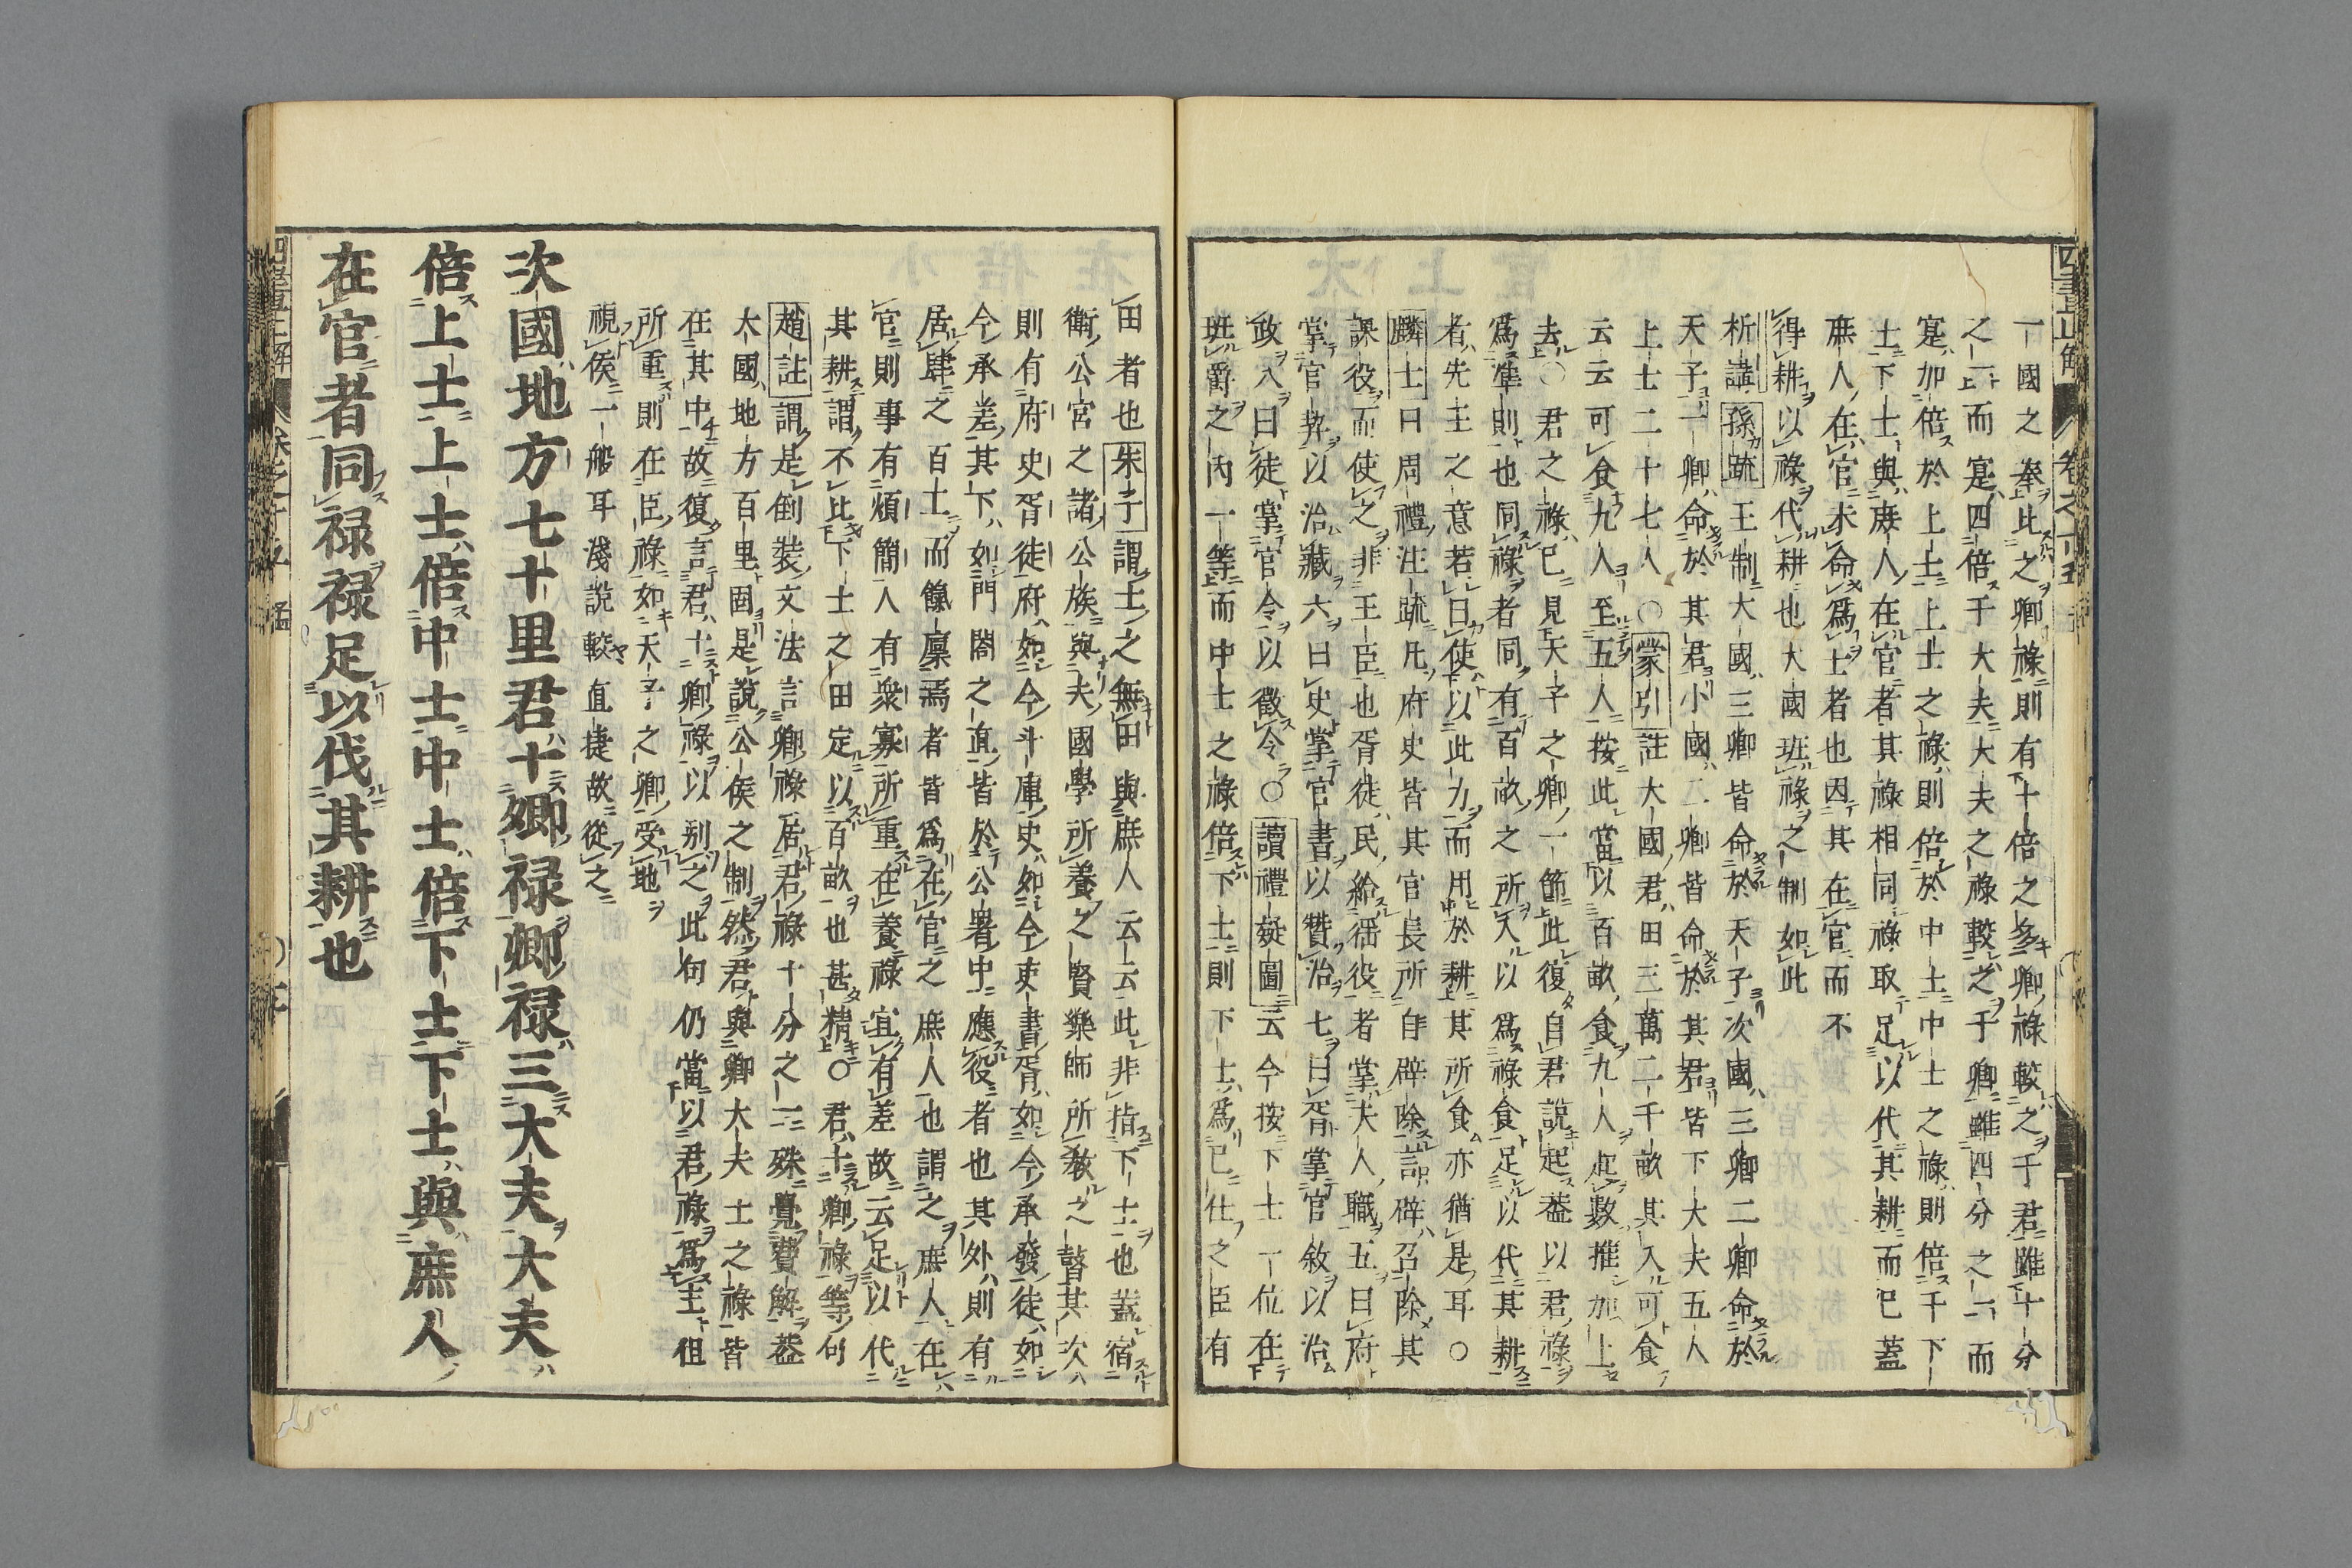 一國之奉此之卿祿則有十倍之多卿祿較之于君雖十分
之一而寔四倍于大夫大夫之祿較之于卿雖四分之一而
寔加倍於上士上士之祿則倍於中士中士之祿則倍于下
士下士與庶人在官者其祿相同祿取足以代其耕而已蓋
庶人在官未命爲士者也因其在官而不
得耕以祿代耕也大國班祿之制如此
析講孫疏王制大國三卿皆命於天子次國三卿二卿命於
天子一卿命於其君小國二卿皆命於其君皆下大夫五人
上士二十七人○蒙引註大國君田三萬二千畝其入可食
云云可食九人至五人按此當以百畝食九人起數推加上
去○君之祿已見天子之卿一節此復自君說起蓋以君祿
爲準則也同祿者同有百畝之所入以爲祿食足以代其耕
者先王之意若曰使以此力而用於耕其所食亦猶是耳○
麟士曰周禮注疏凡府史皆其官長所自辟除謂辟召除其
課役而使之非王臣也胥徒民給徭役者掌夫人職五曰府
掌官契以治藏六曰史掌官書以贊治七曰胥掌官敘以治
政八曰徒掌官令以徵令○讀禮疑圖云今按下士一位在
班爵之内一等而中士之祿倍下士則下士爲已仕之臣有
田者也朱子謂士之無田與庶人云云此非指下士也蓋宿
衛公宮之諸公族與夫國學所養之賢樂師所教之瞽其次
則有府史胥徒府如今斗庫史如今吏書胥如今承發徒如
今承差其下如門閽之直皆於公署中應役者也其外則有
居肆之百士而餼廩焉者皆爲在官之庶人也謂之庶人在
官則事有煩簡人有衆寡所重在養祿宜有差故云足以代
其耕謂不比下士之田定以百畝也甚精○君十卿祿等句
趙註謂是倒裝文法言卿祿居君祿十分之一殊覺費解蓋
大國地方百里固是說公侯之制然君與卿大夫士之祿皆
在其中故復言君十卿祿以别之此句仍當以君祿爲主但
所重則在臣祿如天子之卿受地
視侯一般耳淺說較直捷故從之
次國地方七十里君十卿祿卿祿三大夫大夫
倍上士上士倍中士中士倍下士下士與庶人
在官者同祿祿足以代其耕也